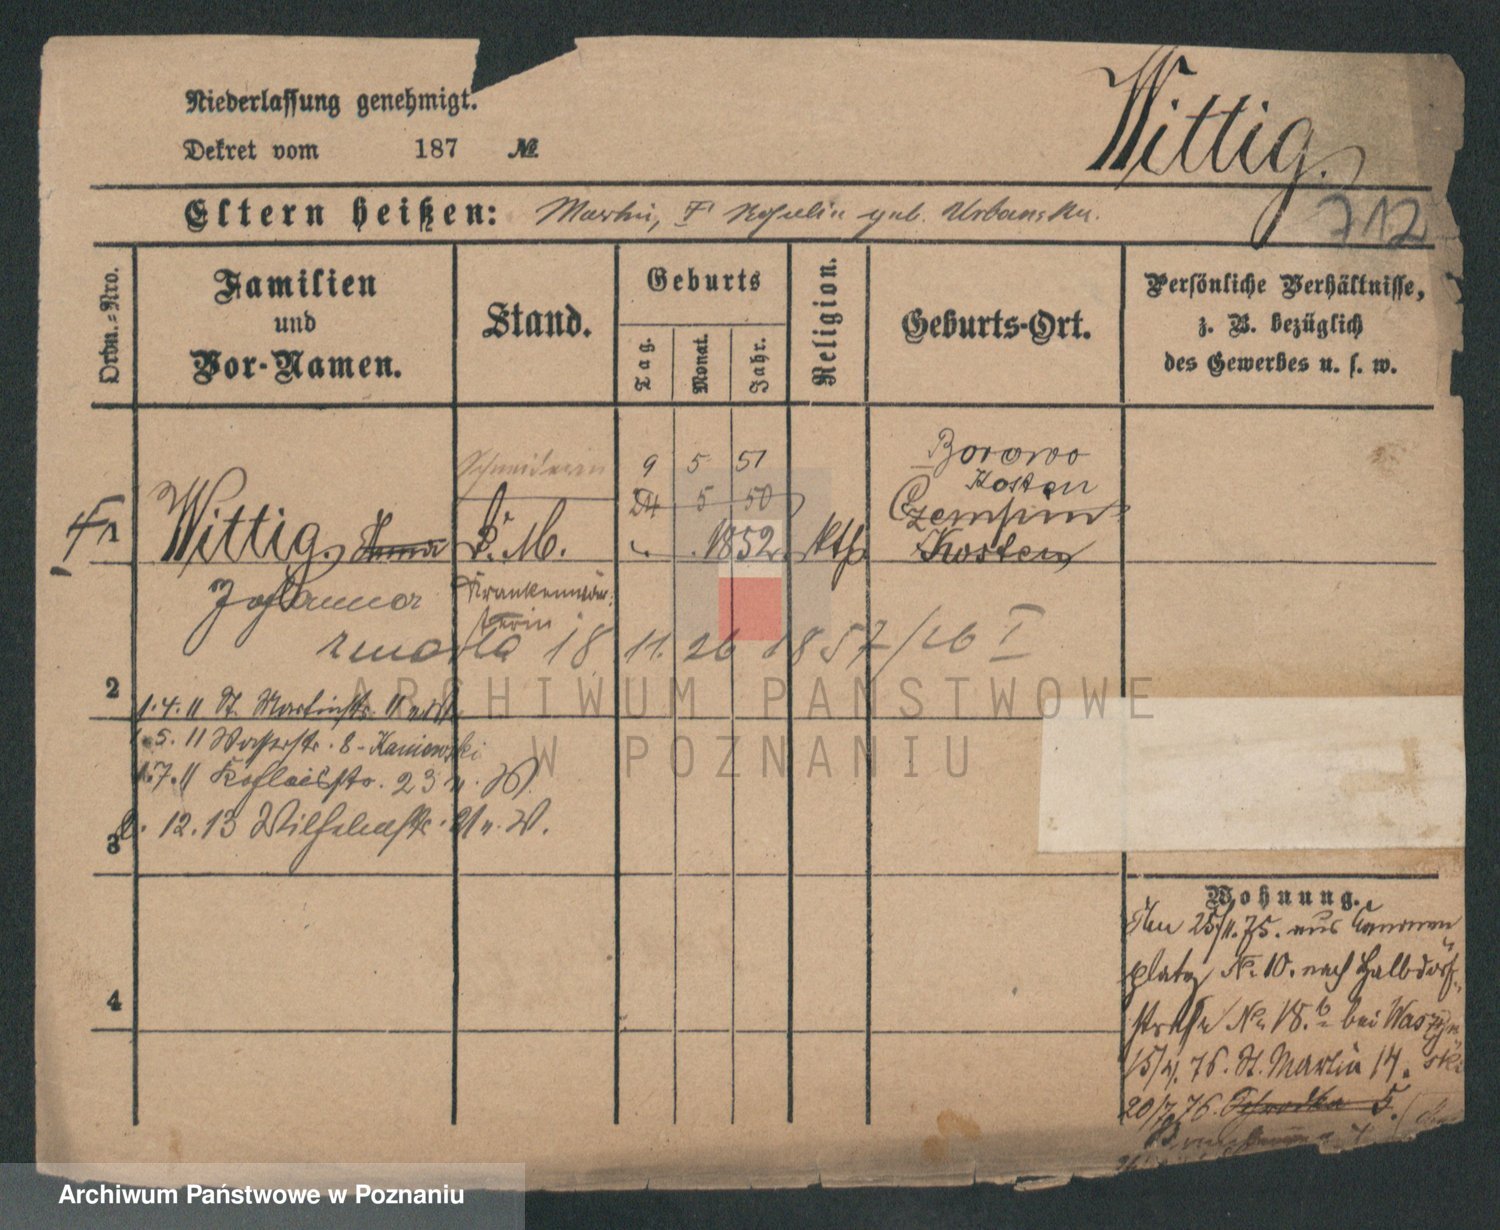 Niederlassung genehmigt.
Dekret vom 187 №
Wittig.
712
Eltern heißen: Martin, Rosalie geb. Urbanska.
Ordn.-Nro.
Familien
und
Vor-Namen.
Stand.
Geburts
Tag.
Monat.
Jahr.
Religion.
Geburts-Ort.
Persönliche Verhältnisse,
z. B. bezüglich
des Gewerbes u. s. w.
Schneiderin 9 5 51 Borowo
Kosten
24 5 50 Czempin
1 Wittig. Anna D. M. 1852 kth Kosten
Johanna Krankenwär-
terin
zmarła 18 11. 26 1857/26 I
2
1.4.11 St. Martinstr.
1.5.11 Wasserstr. 8 - Kaniewski
1.7.11 23 n. W.
3
12.13 21 n. W.
4
Wohnung.
Am 25/11.75. aus Kanonen
platz No. 10. nach Halbdorf-
straße No. 18.b bei Waszyn
ski
15/4. 76. St. Martin 14.
20/7.76. Schrodka 5.
ARCHIWUM PAŃSTWOWE
W POZNANIU
Archiwum Państwowe w Poznaniu